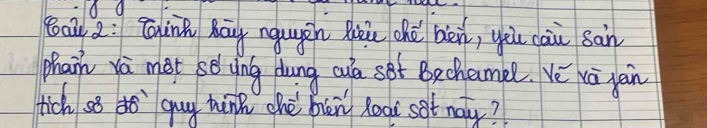 Câu 2: Trình bày nguyên liệu chế biến, yêu cầu sản
phẩm và một số ứng dụng của sốt Bechamel. Vẽ và phân
tích sơ đồ quy trình chế biến loại sốt này?